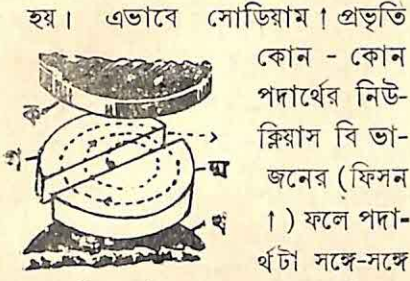 হয়। এভাবে সোডিয়াম↑ প্রভৃতি
কোন - কোন
পদার্থের নিউ-
ক্লিয়াস বি ভা-
জনের (ফিসন
↑) ফলে পদা-
র্থটা সঙ্গে-সঙ্গে
ক
গ
ঘ
খ